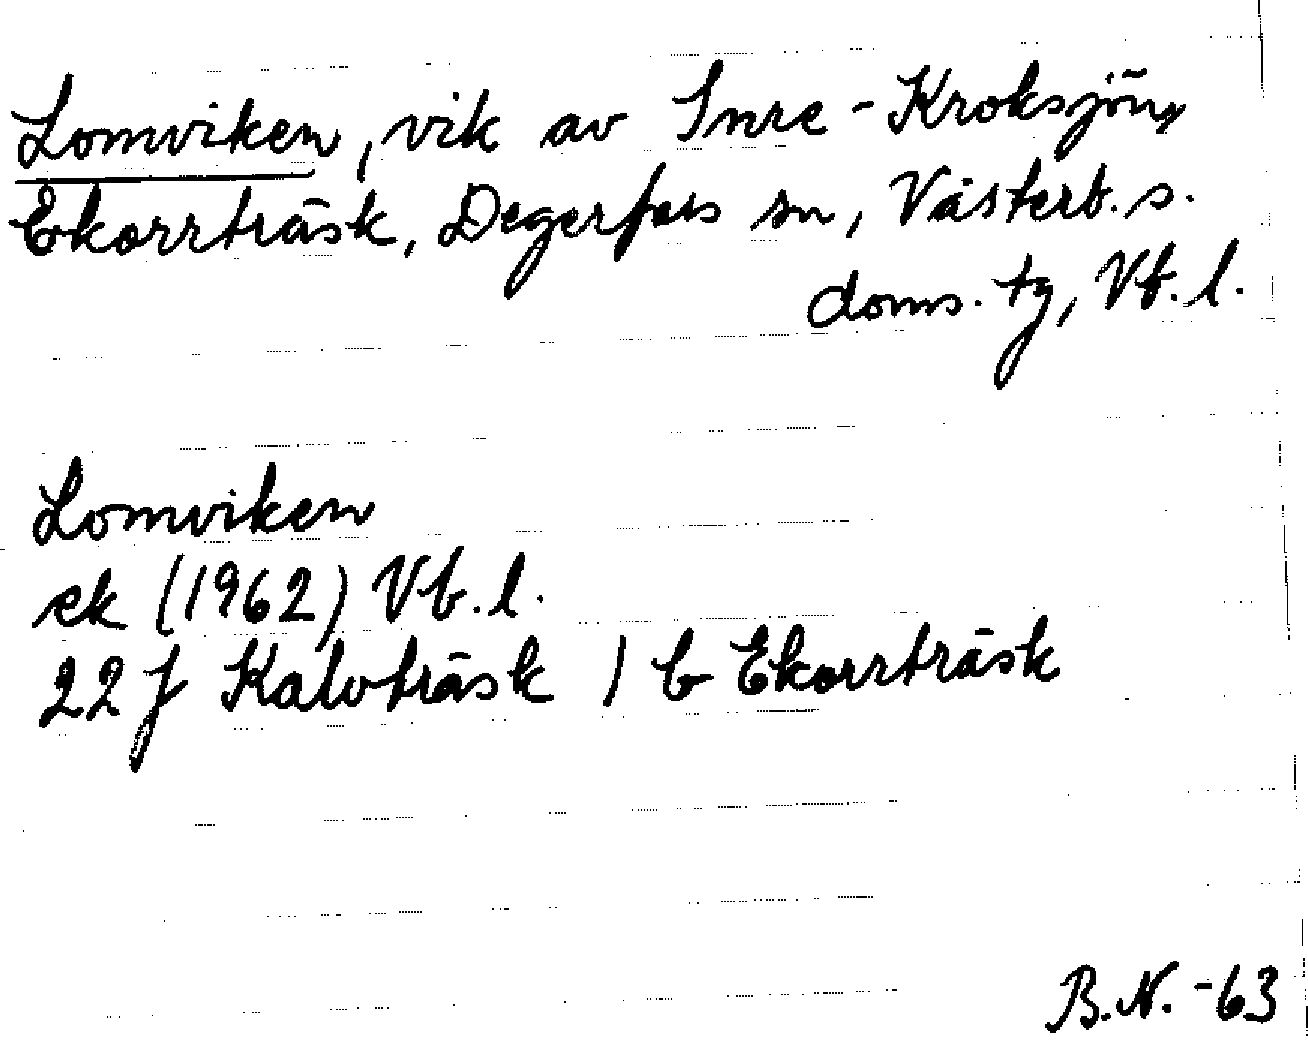 Lomviken, vik av Inre-Kroksjön,
Ekorrträsk, Degerfors sn, Västerb. s.
doms. tg, Vb. l.
Lomviken
ek (1962) Vb. l.
22 J Kalvträsk 1 b Ekorrträsk
B.N. -63